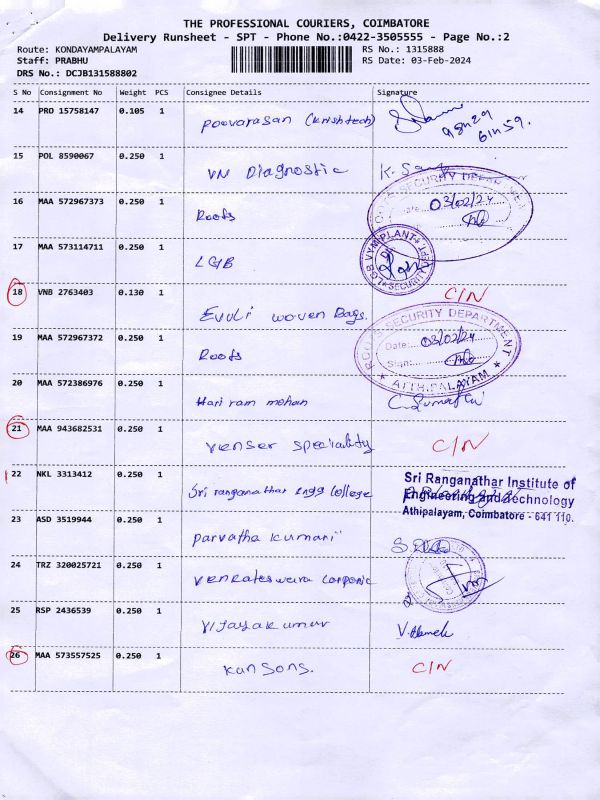 THE PROFESSIONAL COURIERS, COIMBATORE
Delivery Runsheet - SPT - Phone No.:0422-3505555 - Page No.:2
Route: KONDAYAMPALAYAM RS No.: 1315888
Staff: PRABHU RS Date: 03-Feb-2024
DRS No.: DCJB131588802
S No Consignment No Weight PCS Consignee Details Signature
14 PRO 15758147 0.105 1
Poovarasan (Krishtech)
15 POL 8590067 0.250 1
VN Diagnostic
16 MAA 572967373 0.250 1
SECURITY DEPARTMENT
Date: 03/02/24
Roots
17 MAA 573114711 0.250 1
LGB
18 VNB 2763403 0.130 1 C/N
Evuli woven Bags.
SECURITY DEPARTMENT
19 MAA 572967372 0.250 1
Date: 03/02/24
Roots
Sign:
ATHIPALAYAM
20 MAA 572386976 0.250 1
Hari ram mohan
21 MAA 943682531 0.250 1
Venser speciality C/N
22 NKL 3313412 0.250 1
Sri Ranganathar Institute of
Sri ranganathar engg College
Engineering and Technology
Athipalayam, Coimbatore - 641 110.
23 ASD 3519944 0.250 1
Parvatha kumari
24 TRZ 320025721 0.250 1
25 RSP 2436539 0.250 1
Vijayakumar
26 MAA 573557525 0.250 1
Kansons. C/N